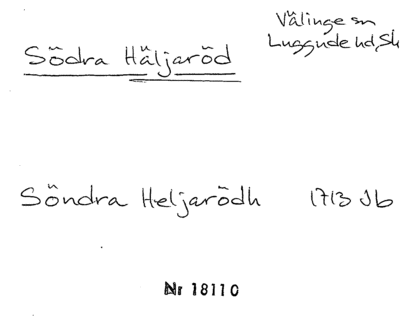 Välinge sn
Södra Häljaröd
Luggude hd, Sk
Söndra Heljarödh 1713 Jb
Nr 18110